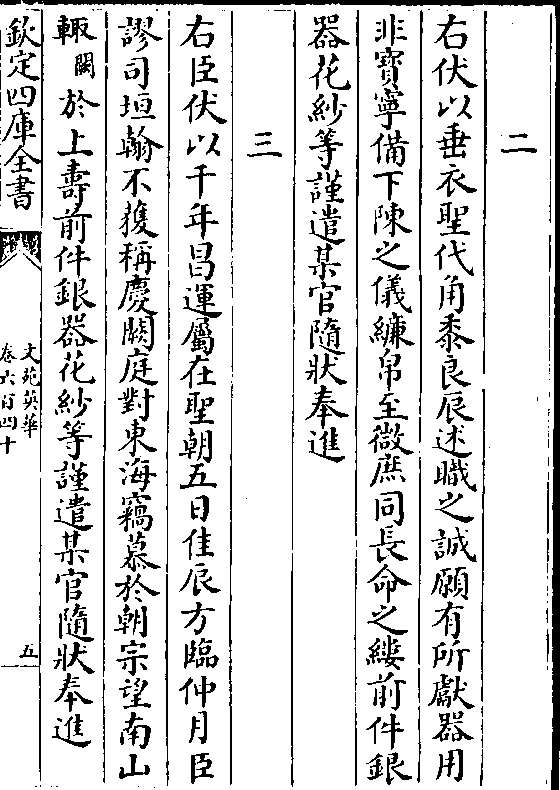 二
右伏以垂衣聖代角黍良辰述職之誠願有所獻器用
非寳寧備下陳之儀縑帛至微庶同長命之縷前件銀
器花紗等謹遣某官隨狀奉進
三
右臣伏以千年昌運屬在聖朝五日佳辰方臨仲月臣
謬司垣翰不獲稱慶闕庭對東海竊慕於朝宗望南山
輙闕於上壽前件銀器花紗等謹遣某官隨狀奉進
欽定四庫全書
文苑英華
卷六百四十
五